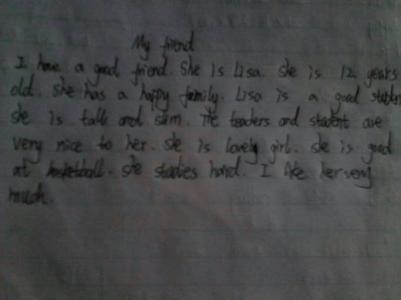 My friend
I have a good friend. She is Lisa. She is 12 years
old. She has a happy family. Lisa is a good studen
she is tall and slim. The teaders and student are
very nice to her. She is lovely girl. She is good
at basketball. She studies hard. I like her very
much.